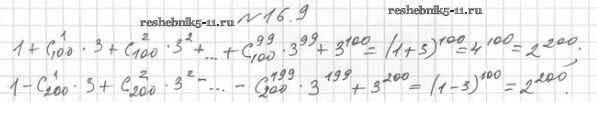 reshebnik5-11.ru
№16.9
reshebnik5-11.ru
1 + C¹₁₀₀ · 3 + C²₁₀₀ · 3² + ... + C⁹⁹₁₀₀ · 3⁹⁹ + 3¹⁰⁰ = (1+3)¹⁰⁰ = 4¹⁰⁰ = 2²⁰⁰;
1 - C¹₂₀₀ · 3 + C²₂₀₀ · 3² - ... - C¹⁹⁹₂₀₀ · 3¹⁹⁹ + 3²⁰⁰ = (1-3)¹⁰⁰ = 2²⁰⁰.